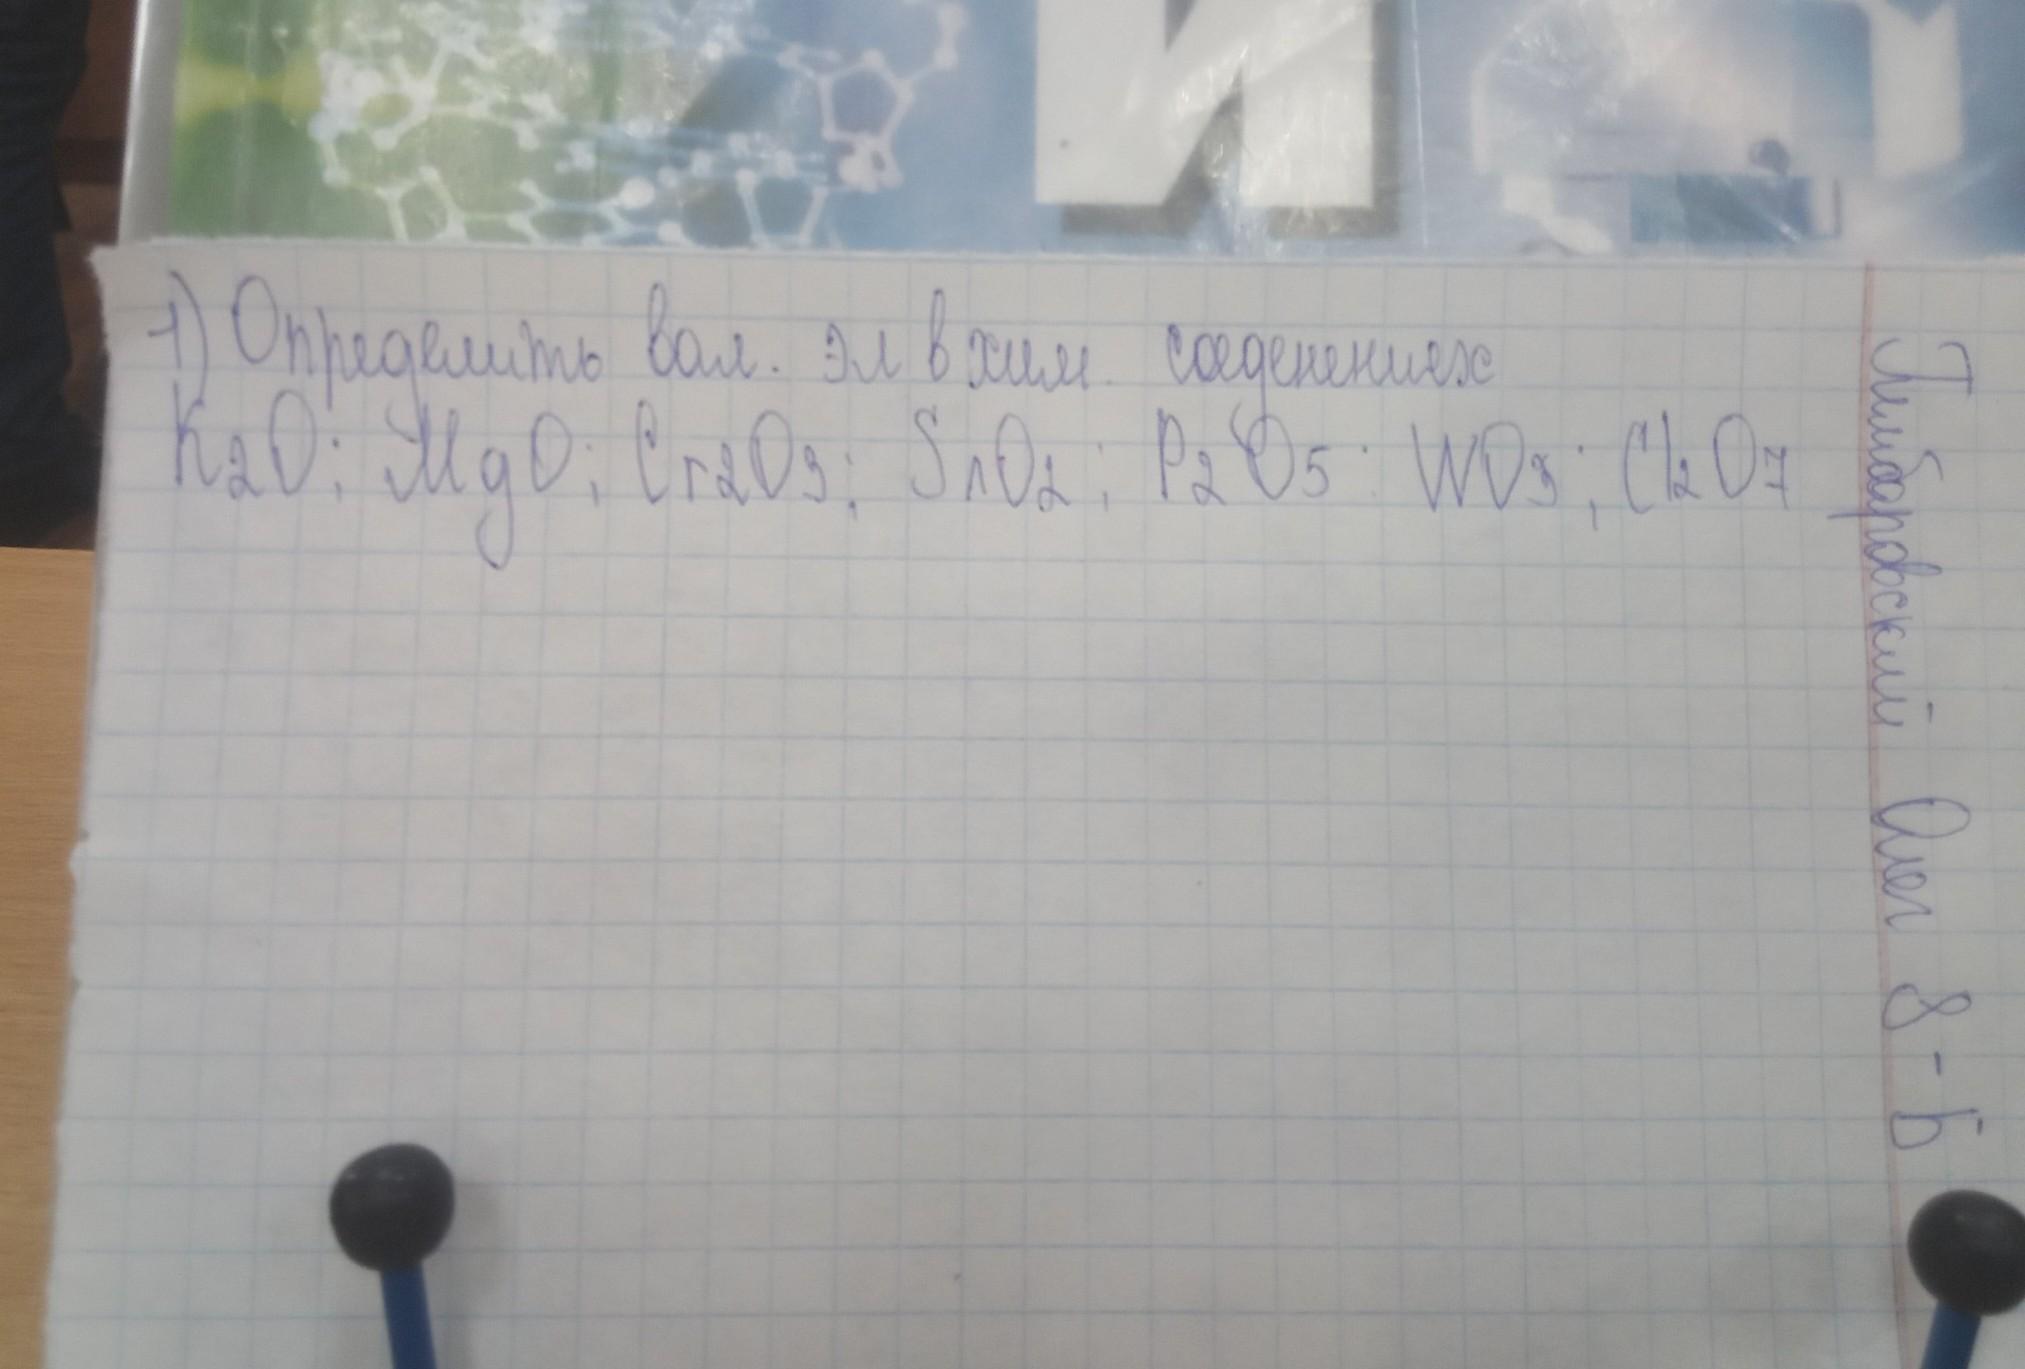 И
1) Определить вал. эл в хим. соеденениях
K2O; MgO; Cr2O3; SnO2; P2O5: WO3; Cl2O7
Олег 8-Б